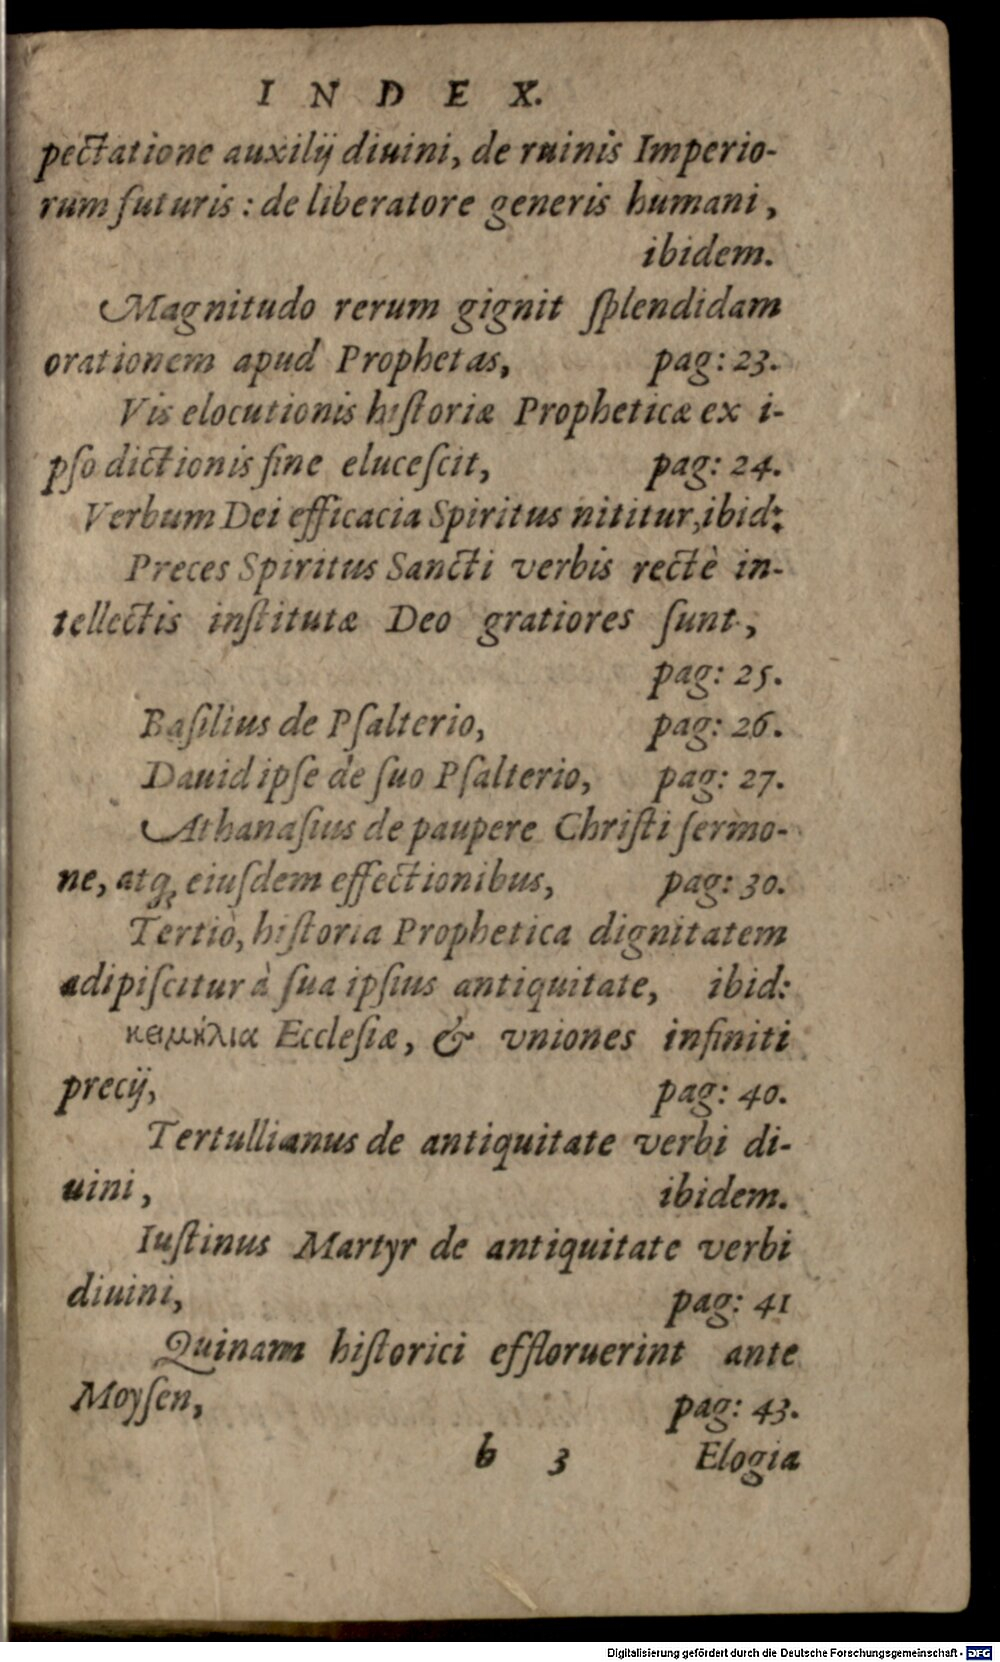 INDEX.
pectatione auxilij diuini, de ruinis Imperio-
rum futuris: de liberatore generis humani,
ibidem.
Magnitudo rerum gignit ſplendidam
orationem apud Prophetas, pag: 23.
Vis elocutionis hiſtoriæ Propheticæ ex i-
pſo dictionis fine eluceſcit, pag: 24.
Verbum Dei efficacia Spiritus nititur, ibid:
Preces Spiritus Sancti verbis rectè in-
tellectis inſtitutæ Deo gratiores ſunt,
pag: 25.
Baſilius de Pſalterio, pag: 26.
Dauid ipſe de ſuo Pſalterio, pag: 27.
Athanaſius de paupere Chriſti ſermo-
ne, atq; eiuſdem effectionibus, pag: 30.
Tertiò, hiſtoria Prophetica dignitatem
adipiſcitur à ſua ipſius antiquitate, ibid:
κειμήλια Eccleſiæ, & vniones infiniti
precij, pag: 40.
Tertullianus de antiquitate verbi di-
uini, ibidem.
Iuſtinus Martyr de antiquitate verbi
diuini, pag: 41
Quinam hiſtorici effloruerint ante
Moyſen, pag: 43.
b 3 Elogia
Digitalisierung gefördert durch die Deutsche Forschungsgemeinschaft - DFG